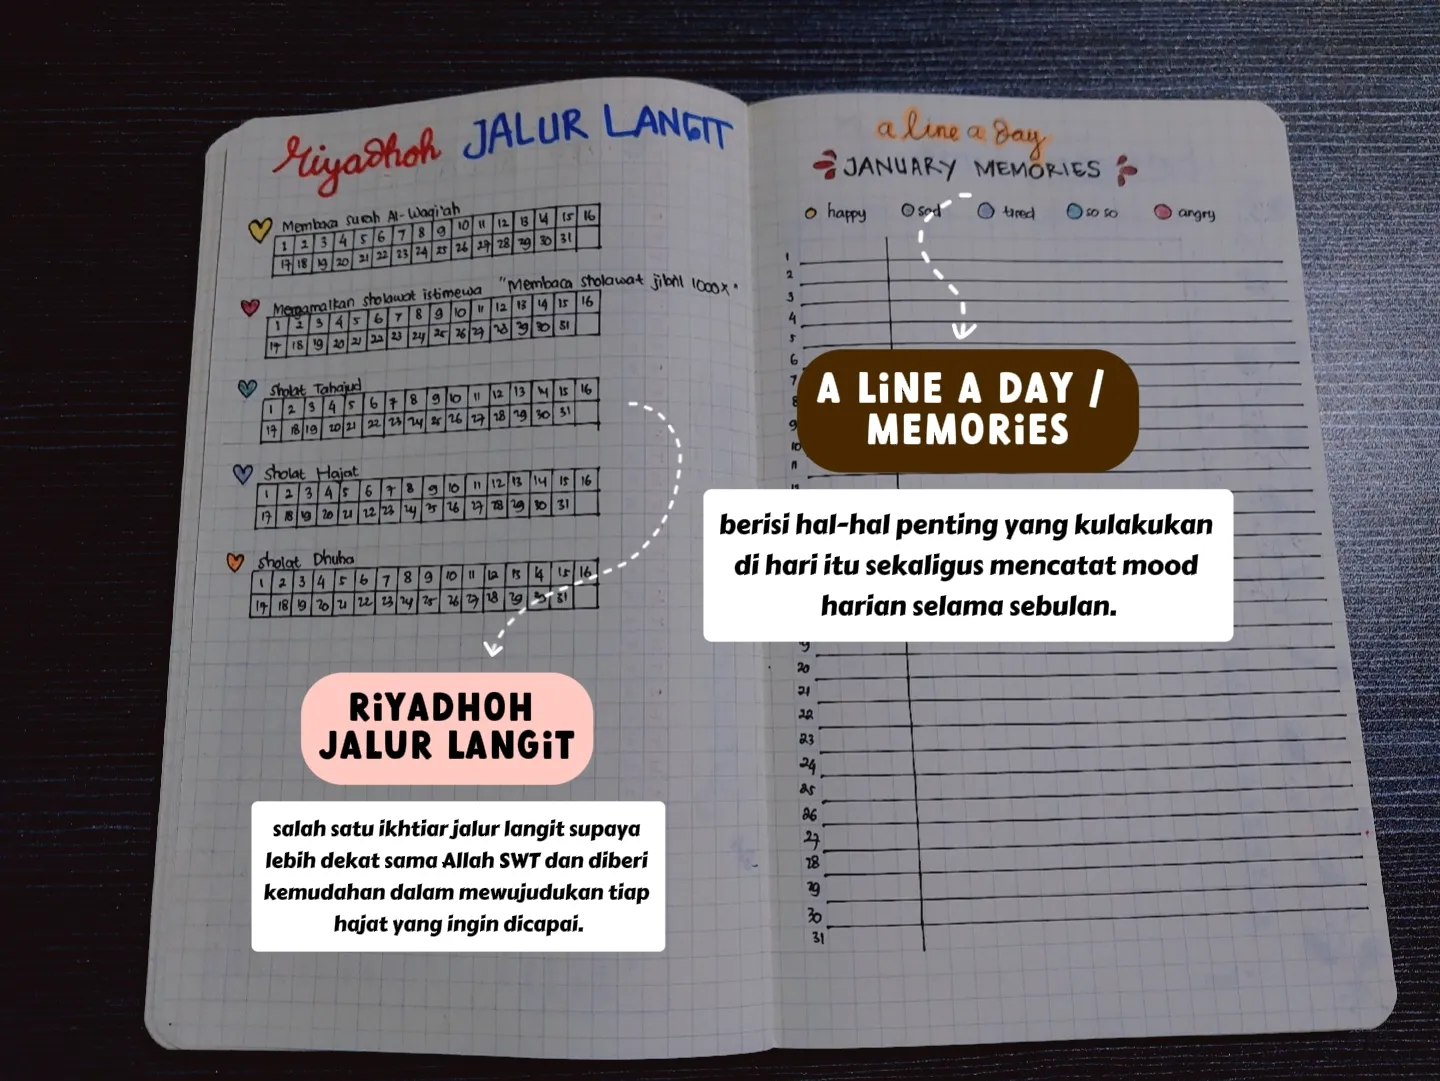 Riyadhoh JALUR LANGIT
Membaca surah Al-Waqi'ah
1 2 3 4 5 6 7 8 9 10 11 12 13 14 15 16
17 18 19 20 21 22 23 24 25 26 27 28 29 30 31
Mengamalkan sholawat istimewa "Membaca sholawat jibril 1000x"
1 2 3 4 5 6 7 8 9 10 11 12 13 14 15 16
17 18 19 20 21 22 23 24 25 26 27 28 29 30 31
Sholat Tahajud
1 2 3 4 5 6 7 8 9 10 11 12 13 14 15 16
17 18 19 20 21 22 23 24 25 26 27 28 29 30 31
Sholat Hajat
1 2 3 4 5 6 7 8 9 10 11 12 13 14 15 16
17 18 19 20 21 22 23 24 25 26 27 28 29 30 31
Sholat Dhuha
1 2 3 4 5 6 7 8 9 10 11 12 13 14 15 16
17 18 19 20 21 22 23 24 25 26 27 28 29 30 31
RiYADHOH
JALUR LANGiT
salah satu ikhtiar jalur langit supaya
lebih dekat sama Allah SWT dan diberi
kemudahan dalam mewujudukan tiap
hajat yang ingin dicapai.
a line a day
JANUARY MEMORIES
happy sad tired so so angry
1
2
3
4
5
6
7
8
9
10
11
A LiNE A DAY /
MEMORiES
berisi hal-hal penting yang kulakukan
di hari itu sekaligus mencatat mood
harian selama sebulan.
20
21
22
23
24
25
26
27
28
29
30
31